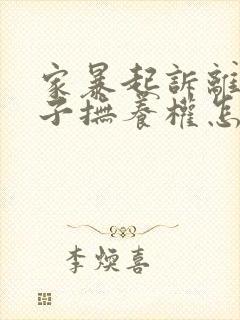 家暴起訴離
子撫養權怎
李煥喜